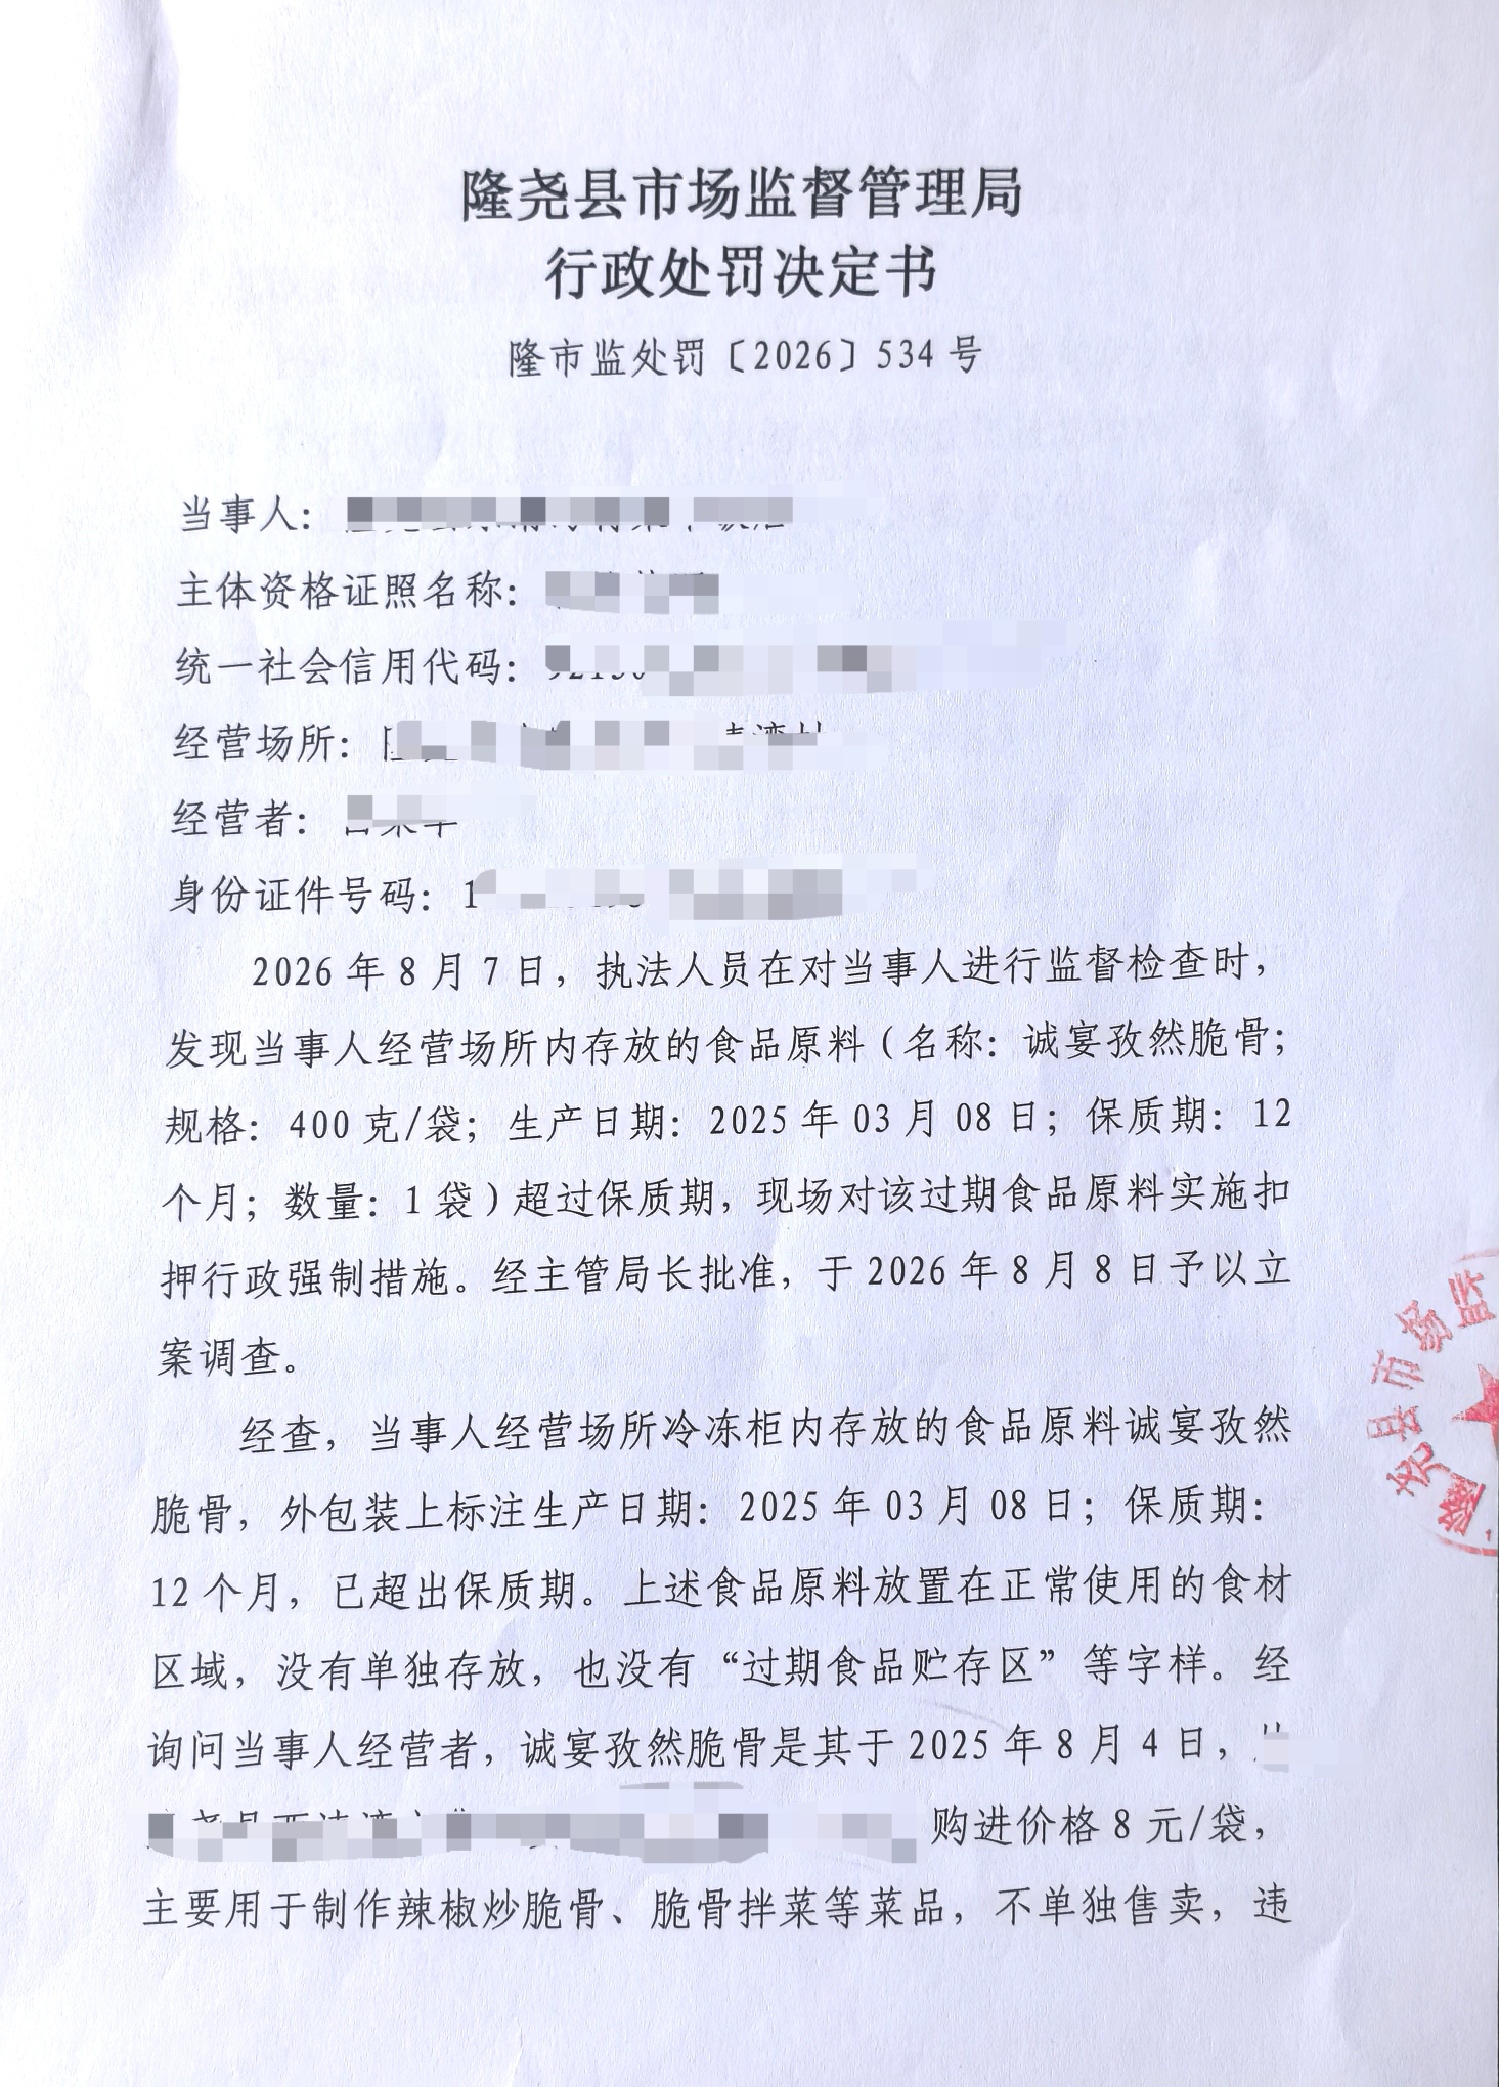 隆尧县市场监督管理局
行政处罚决定书
隆市监处罚〔2026〕534 号
当事人：
主体资格证照名称：
统一社会信用代码：
经营场所：
经营者：
身份证件号码：1
2026 年 8 月 7 日，执法人员在对当事人进行监督检查时，
发现当事人经营场所内存放的食品原料（名称：诚宴孜然脆骨；
规格：400 克/袋；生产日期：2025 年 03 月 08 日；保质期：12
个月；数量：1 袋）超过保质期，现场对该过期食品原料实施扣
押行政强制措施。经主管局长批准，于 2026 年 8 月 8 日予以立
案调查。
经查，当事人经营场所冷冻柜内存放的食品原料诚宴孜然
脆骨，外包装上标注生产日期：2025 年 03 月 08 日；保质期：
12 个月，已超出保质期。上述食品原料放置在正常使用的食材
区域，没有单独存放，也没有“过期食品贮存区”等字样。经
询问当事人经营者，诚宴孜然脆骨是其于 2025 年 8 月 4 日，
购进价格 8 元/袋，
主要用于制作辣椒炒脆骨、脆骨拌菜等菜品，不单独售卖，违
隆尧县市场监